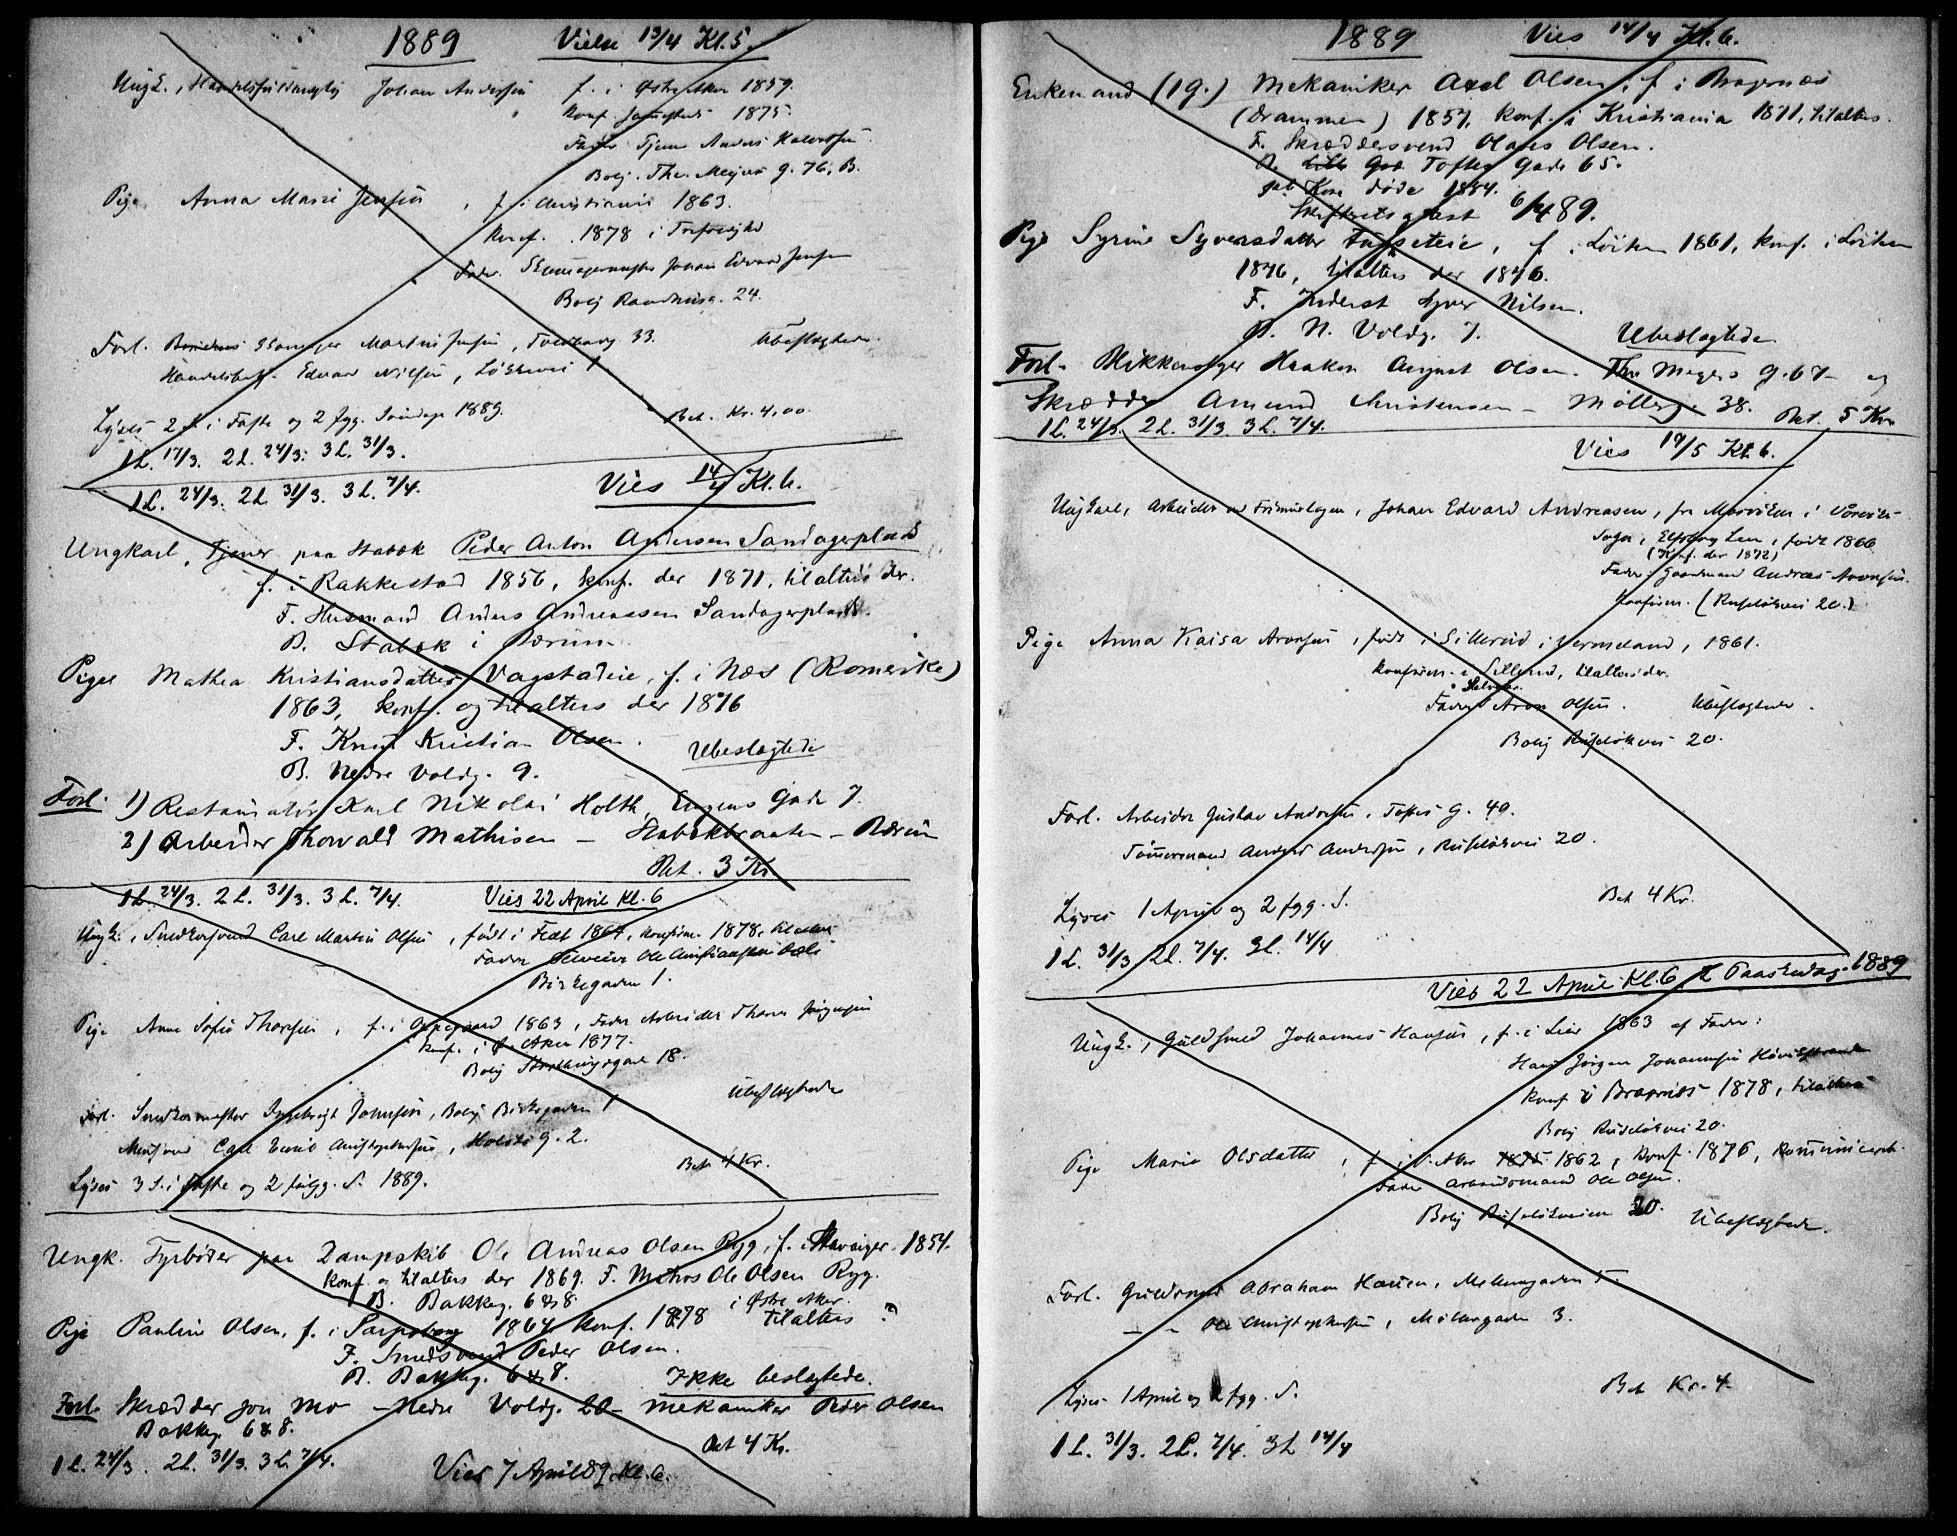 1889 Vielse 13/4 Kl. 5.
Ungk., Johan Andersen f. i 1859.
Konf. 1875.
Fader Tjener Anders Halvorsen.
Bolig. Thv. Meyers g. 76, B.
Pige Anna Marie Jensen, f. i Christiania 1863.
Konf. 1878 i
Fader. Skomagermester Johan Edvard Jensen
Bolig Raadhusg. 24.
Forl. Skomager Martin Jensen, 33. Ubeslægtede.
Edvard Nilsen, 1
Lyses 2 S. i Faste og 2 fgg. Søndage 1889. Bet. Kr. 4,00.
1 L. 17/3. 2 L. 24/3. 3 L. 31/3.
1 L. 24/3. 2 L. 31/3. 3 L. 7/4. Vies 14/4 Kl. 6.
Ungkarl, Tjener paa Stabæk Peder Anton Andersen Sandagerplads
f. i Rakkestad 1856, konf. der 1871, tilalters der.
F. Husmand Anders Andreassen Sandagerplads.
B. Stabæk i Bærum.
Pige Mathea Kristiansdatter Vagstadeie, f. i Næs (Romerike)
1863, konf. og tilalters der 1876
F. Knut Kristian Olsen. Ubeslægtede
B. Nedre Voldg. 9.
Forl. 1) Restauratør Karl Nikolai Holth, Eugens Gade 7.
2) Arbeider Thorvald Mathisen – Stabækbraaten – Bærum
Bet. 3 Kr.
1 L. 24/3. 2 L. 31/3. 3 L. 7/4. Vies 22 April Kl. 6
Ungk., Snedkersvend Carl Martin Olsen, født i Fet 1864, konfirm. 1878,
Fader Ole Christiansen
Birkegaden 1.
Pige Anne Sofie Thorsen, f. i Oppegaard 1863, Fader Arbeider Thorer Jørgensen
konf. i Ø. Aker 1877.
Bolig Storthingsgade 18.
Ubeslægtede
Forl. Snedkermester Johnsen, Bolig Birkegaden 1
Carl Emil Christophersen, Holsts g. 2.
Bet 4 Kr.
Lyses 3 S. i Faste og 2 følgg. S. 1889.
Ungk. Fyrbøder paa Dampskib Ole Andreas Olsen Ryg, f. i Stavanger 1854.
Konf. og tilalters der 1869. F. Matros Ole Olsen Ryg.
B. Bakkeg. 6 & 8 i Østre Aker.
Pige Pauline Olsen, f. i Sarpsborg 1864. Konf. 1878 tilalters ?
F. Smedsvend Peder Olsen.
B. Bakkeg. 6 & 8. Ikke beslægtede.
Forl. Skrædder Jon Mo – Nedre Voldg. 20 – Mekaniker Peder Olsen
Bakkeg. 6 & 8.
Bet 4 Kr.
1 L. 24/3. 2 L. 31/3. 3 L. 7/4.
Vies 7 April 89. Kl. 6.
1889 Vies 14/4 Kl. 6.
Enkemand (1 g.) Mekaniker Axel Olsen, f. i Bragernæs
(Drammen) 1857, konf. i Kristiania 1871, tilalters.
F. Skræddersvend Olaus Olsen.
B. Toftes Gade 65.
Kone døde 1884.
Skifteretsattest 6/4 89.
Pige Syrine Syversdatter, f. i Løiten 1861, konf. i Løiten
1876, tilalters der 1876.
F. Inderst Syver Nilsen.
B. N. Voldg. 7. Ubeslægtede
Forl. Blikkenslager Haakon August Olsen. Thv Meyers g. 67 – og
Skrædder Amund Christensen – Møllerg. 38. Bet. 5 Kr
1 L. 24/3. 2 L. 31/3. 3 L. 7/4.
Vies 19/5 Kl. 6.
Ungkarl, Arbeider ved Frimurlogen, Johan Edvard Andreasen, fra i
Sogn, Elfsborg Len, født 1866
(Konf. der 1872)
Fader: Gaardmand Andreas
(Ruseløkvei 20.)
Pige Anna Kaisa Aronsen, født i Sillerud i Vermeland, 1861.
Konfirm. i Sillerud, tilalters der.
Fader Aron Olsen. Ubeslægtede.
Bolig Ruseløkvei 20.
Forl. Arbeider Gustav Andersen, Toftes g. 49.
Tømmermand Anders Andersen, Ruseløkvei 20.
Lyses 1 April og 2 fgg. S. Bet 4 Kr.
1 L. 31/3 2 L. 7/4. 3 L. 14/4
Vies 22 April Kl. 6 2 Paaskedag 1889
Ungk., Guldsmed Johannes Hansen, f. i Lier 1863 af Fader:
Hans Jørgen Johannesen
Konf i Bragernæs 1878, tilalters
Bolig Ruseløkvei 20.
Pige Marie Olsdatter, f. i V. Aker 1862, Konf. 1876,
Fader Arbeidsmand Ole Olsen.
Bolig Ruseløkveien 20. Ubeslægtede.
Forl. Guldsmed Abraham Hansen, Møllergaden 5.
– " – Ole Christophersen, Møllergaden 3.
Lyses 1 April og 2 fgg. S. Bet Kr. 4.
1 L. 31/3. 2 L. 7/4. 3 L 14/4